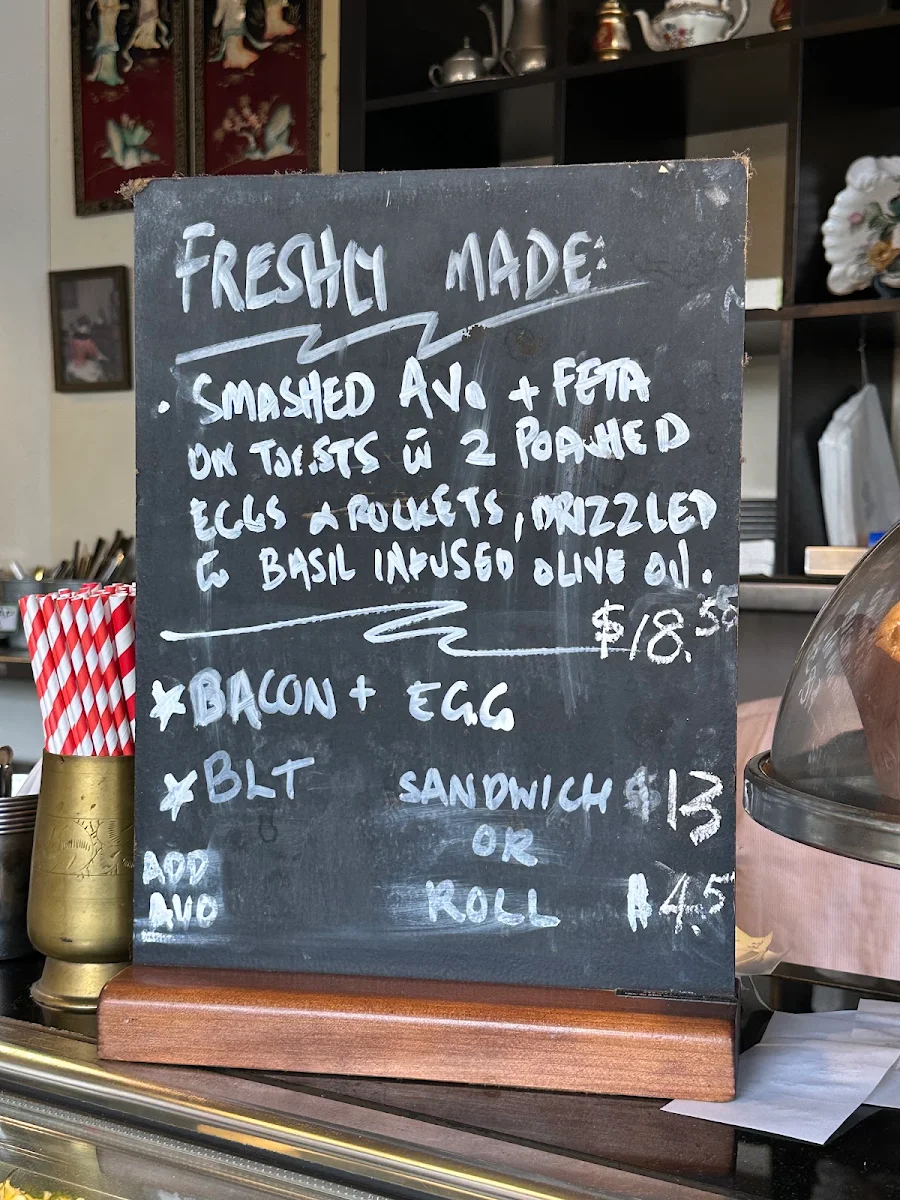 FRESHLY MADE:
• SMASHED AVo + FETA
ON TOASTS w̄ 2 POACHED
EGGS & ROCKETS, DRIZZLED
w̄ BASIL INFUSED OLIVE OIL.
$18.50
☆ BACON + EGG
☆ BLT SANDWICH $13
OR
ADD
AVO ROLL 4.5